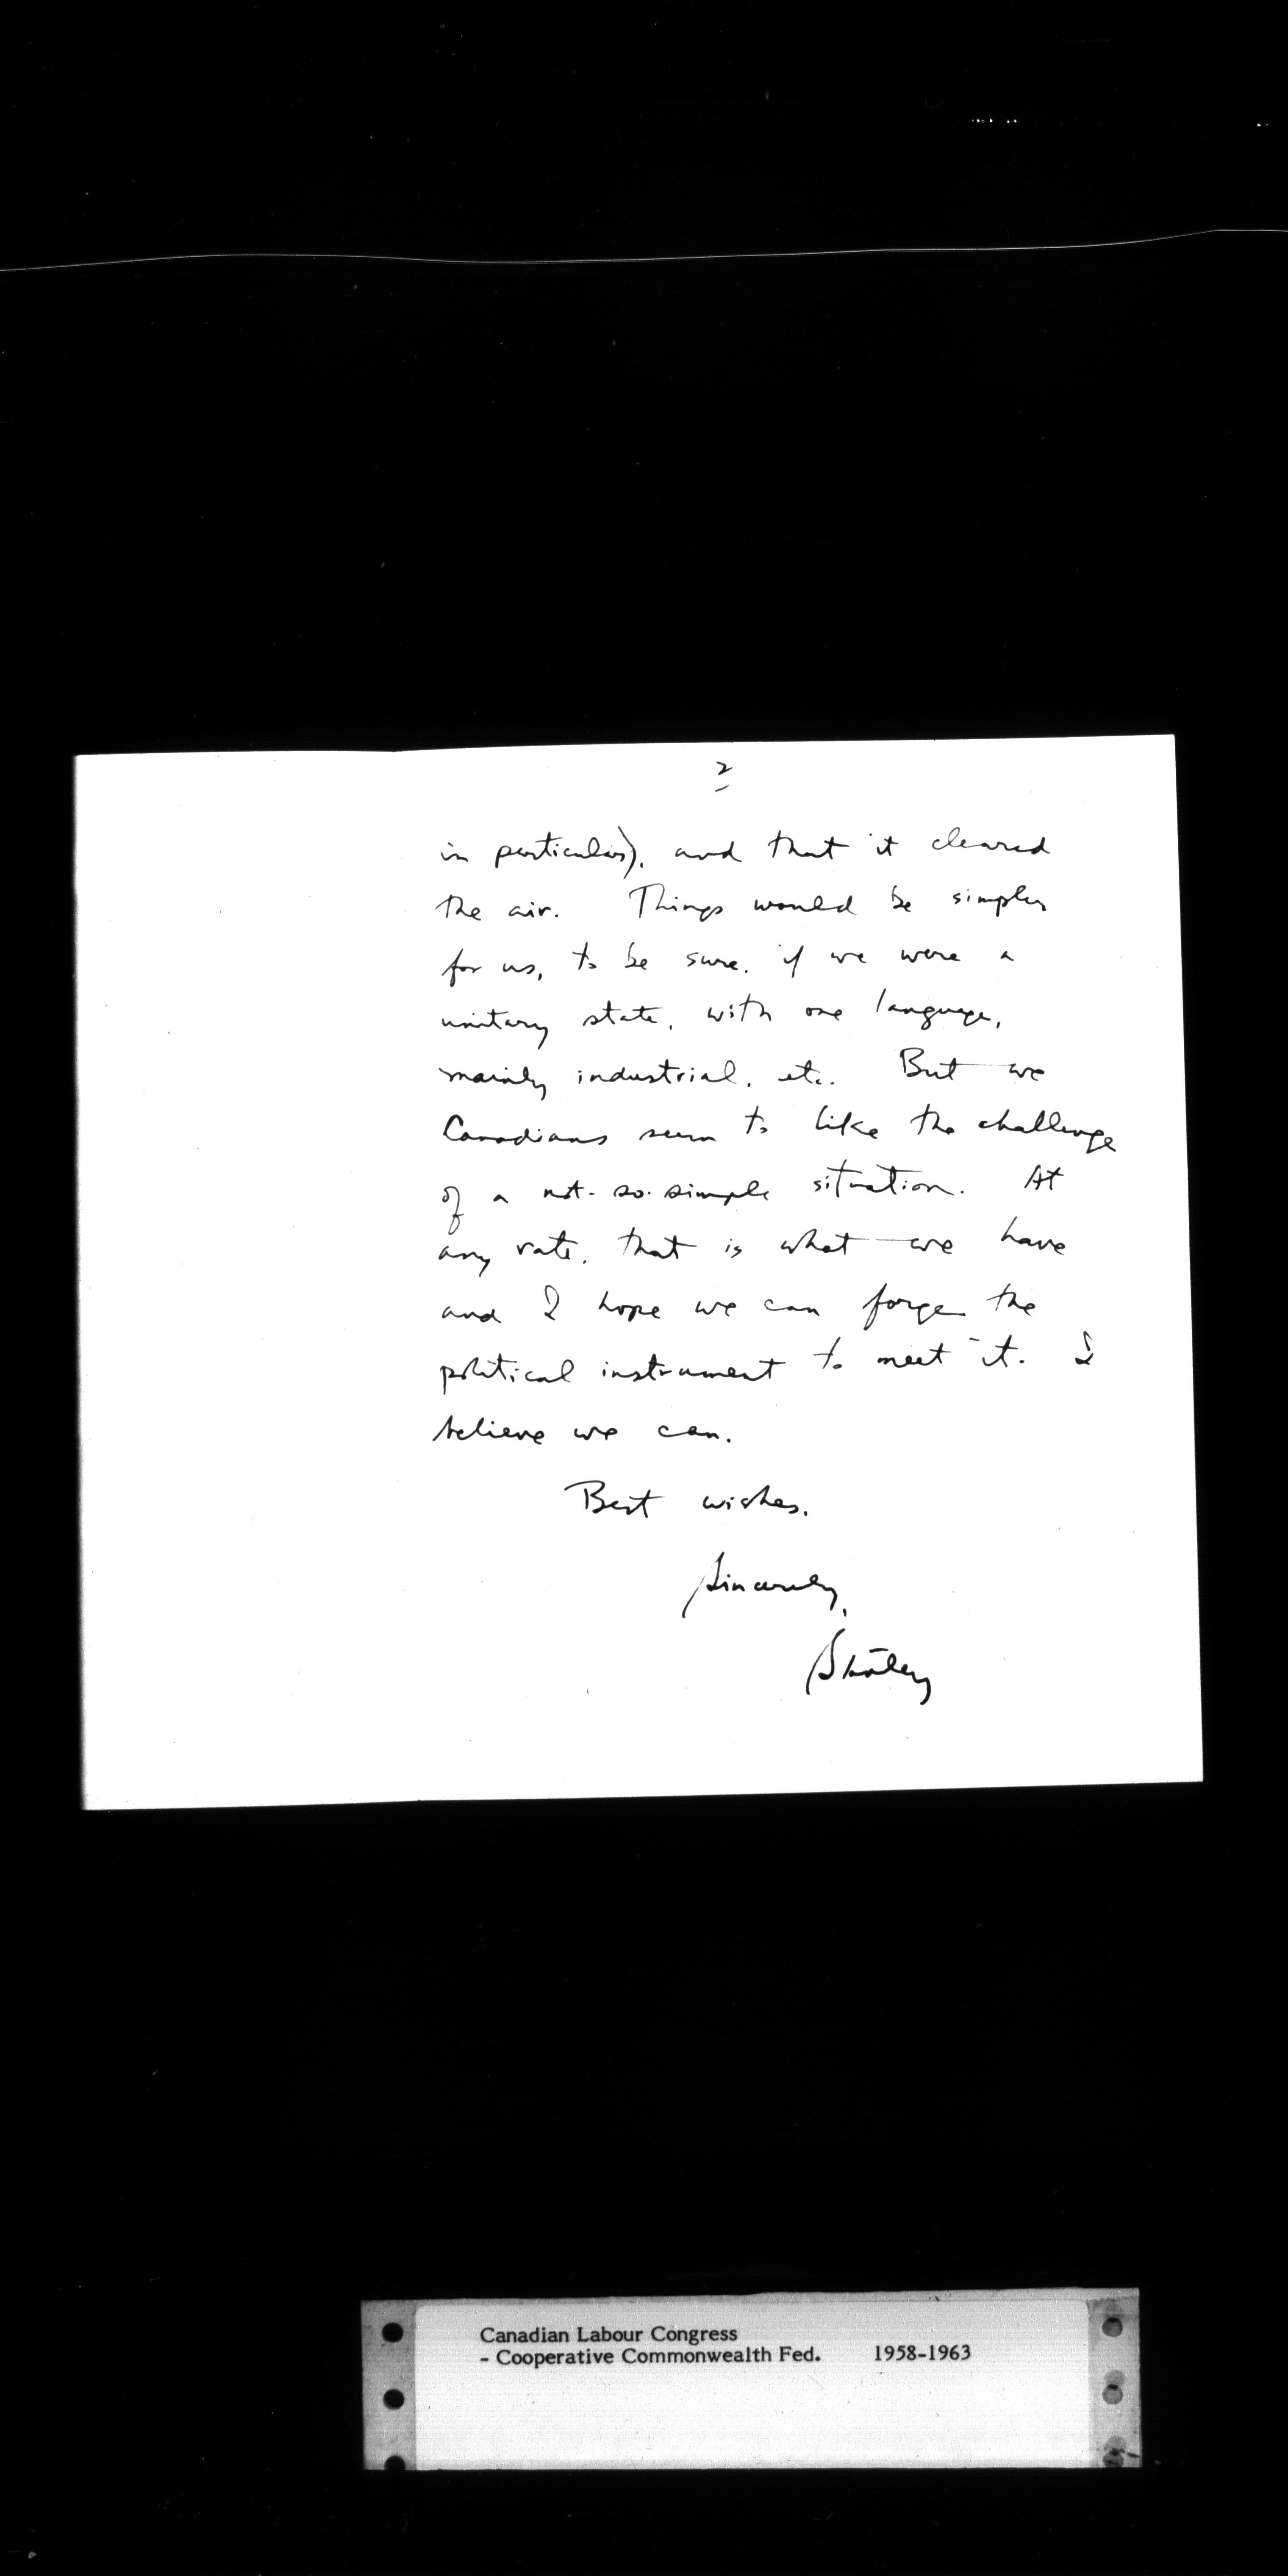 2
in particular), and that it cleared
the air. Things would be simpler
for us, to be sure, if we were a
unitary state, with one language,
mainly industrial, etc. But we
Canadians seem to like the challenge
of a not-so-simple situation. At
any rate, that is what we have
and I hope we can forge the
political instrument to meet it. I
believe we can.
Best wishes.
Sincerely,
Stanley
Canadian Labour Congress
- Cooperative Commonwealth Fed. 1958-1963